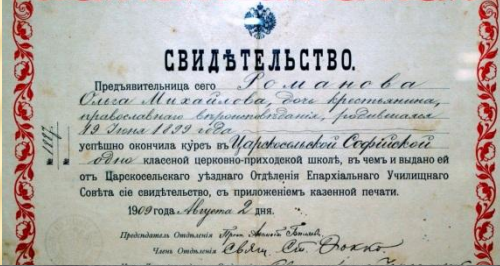 СВИДѢТЕЛЬСТВО.
Предъявительница сего Романова
Ольга Михайлова, дочь крестьянина,
православнаго вѣроисповѣданія, родившаяся
19 Іюня 1899 года
успѣшно окончила курсъ въ Царскосельской Софійской
одно классной церковно-приходской школѣ, въ чемъ и выдано ей
отъ Царскосельскаго уѣзднаго Отдѣленія Епархіальнаго Училищнаго
Совѣта сіе свидѣтельство, съ приложеніемъ казенной печати.
1909 года Августа 2 дня.
Предсѣдатель Отдѣленія
Членъ Отдѣленія Свящ. Ст. Фокко